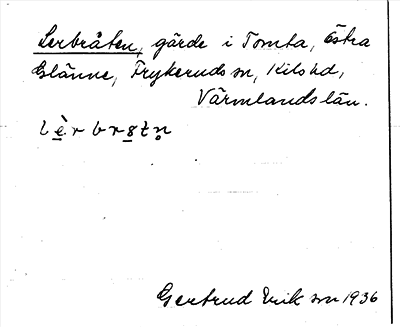 Lerbråten, gärde i Tomta, Östra
Glänne, Frykeruds sn, Kils hd,
Värmlands län.
lè̱rbrs̱tn̥
Gertrud Erikson 1936